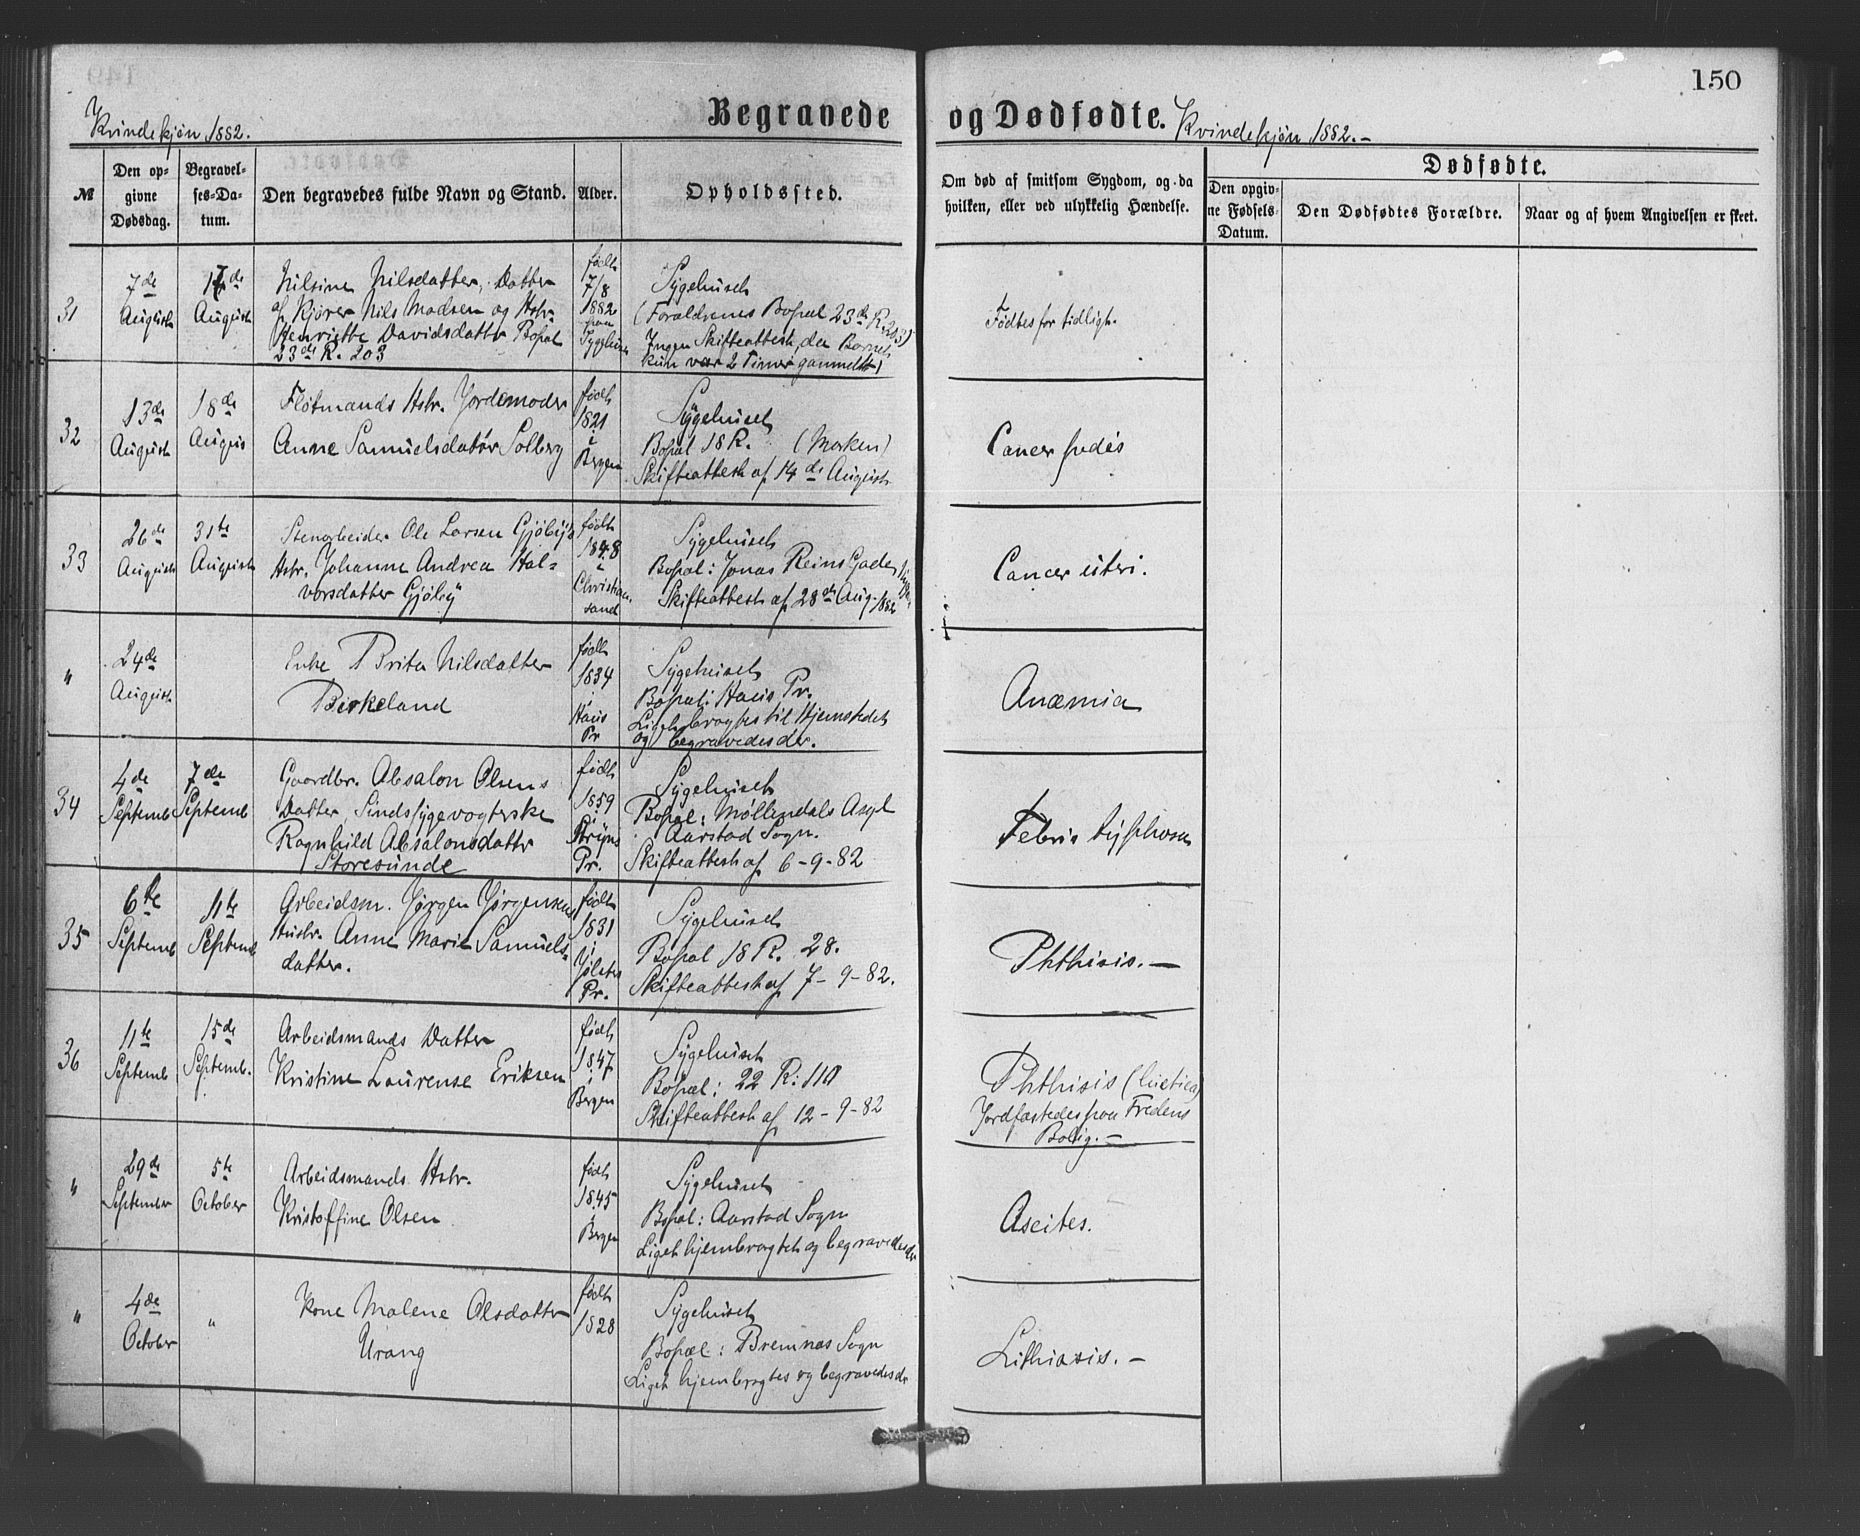 150
Begravede og Dødfødte.
Kvindekjøn 1882.
Kvindekjøn 1882.-
№
Den op-
givne
Dødsdag.
Begravel-
ses-Da-
tum.
Den begravedes fulde Navn og Stand.
Alder.
Opholdssted.
Om død af smitsom Sygdom, og da
hvilken, eller ved ulykkelig Hændelse.
Dødfødte.
Den opgiv-
ne Fødsels-
Datum.
Den Dødfødtes Forældre.
Naar og af hvem Angivelsen er skeet.
31
7de
August
August
Nilsine Nilsdatter, Datter
af Kjører Nils Madsen og Hstr.
Henriette Davidsdatter Bopæl
23de R. 203
født
7/8
1882
paa
Sygehuset
Sygehuset
(Forældrenes Bopæl 23de R. 203)
Ingen Skifteattest, da Barnet
kun var 2 Timer gammelt)
Fødtes for tidligt.
32
13de
August
18de
August
Fløtmands Hstr. Jordemoder
Anne Samuelsdatter Solberg
født
1821
i
Bergen
Sygehuset
Bopæl 18 R. (Marken)
Skifteattest af 14de August
Cancer pedis
33
26de
August
31te
August
Stenarbeider Ole Larsen Gjøbys
Hstr. Johanne Andrea Hal-
vorsdatter Gjøby
født
1848
i
Christian-
sand
Sygehuset
Bopæl: Jonas Reins Gade
Skifteattest af 28de Aug. 1882
Cancer uteri.
"
24de
August
Enke Brita Nilsdatter
Birkeland
født
1834
i
Haus
Pr.
Sygehuset
Bopæl: Haus Pr.
Liget bragtes til Hjemstedet
og begravedes der.
Anæmia
34
4de
Septemb
7de
Septemb
Gaardbr. Absalon Olsens
Datter, Sindssygevogterske
Ragnhild Absalonsdatter
Storesunde
født
1859
i
Stryns
Pr.
Sygehuset
Bopæl: Møllendals Asyl
Aarstad Sogn.
Skifteattest af 6-9-82
Febris typhosa
35
6te
Septemb
11te
Septemb
Arbeidsm. Jørgen Jørgensens
Hustr. Anne Marie Samuels-
datter.
født
1831
i
Jølster
Pr.
Sygehuset
Bopæl 18 R. 28.
Skifteattest af 7-9-82.
Phthisis.-
36
11te
Septemb
15de
Septemb.
Arbeidsmands Datter
Kristine Laurense Eriksen
født
1847
i
Bergen
Sygehuset
Bopæl: 22 R: 110
Skifteattest af 12-9-82
Phthisis (luetica)
Jordfæstedes paa Fredens
Bolig.-
"
29de
September
5te
October
Arbeidsmands Hstr.
Kristoffine Olsen
født
1845
i
Bergen
Sygehuset
Bopæl: Aarstad Sogn
Liget hjembragtes og begravedes der
Ascites.
"
4de
October
"
Kone Malene Olsdatter
Urang
født
1828
Sygehuset
Bopæl: Bremnæs Sogn
Liget hjembragtes og begravedes der
Lithiasis.-